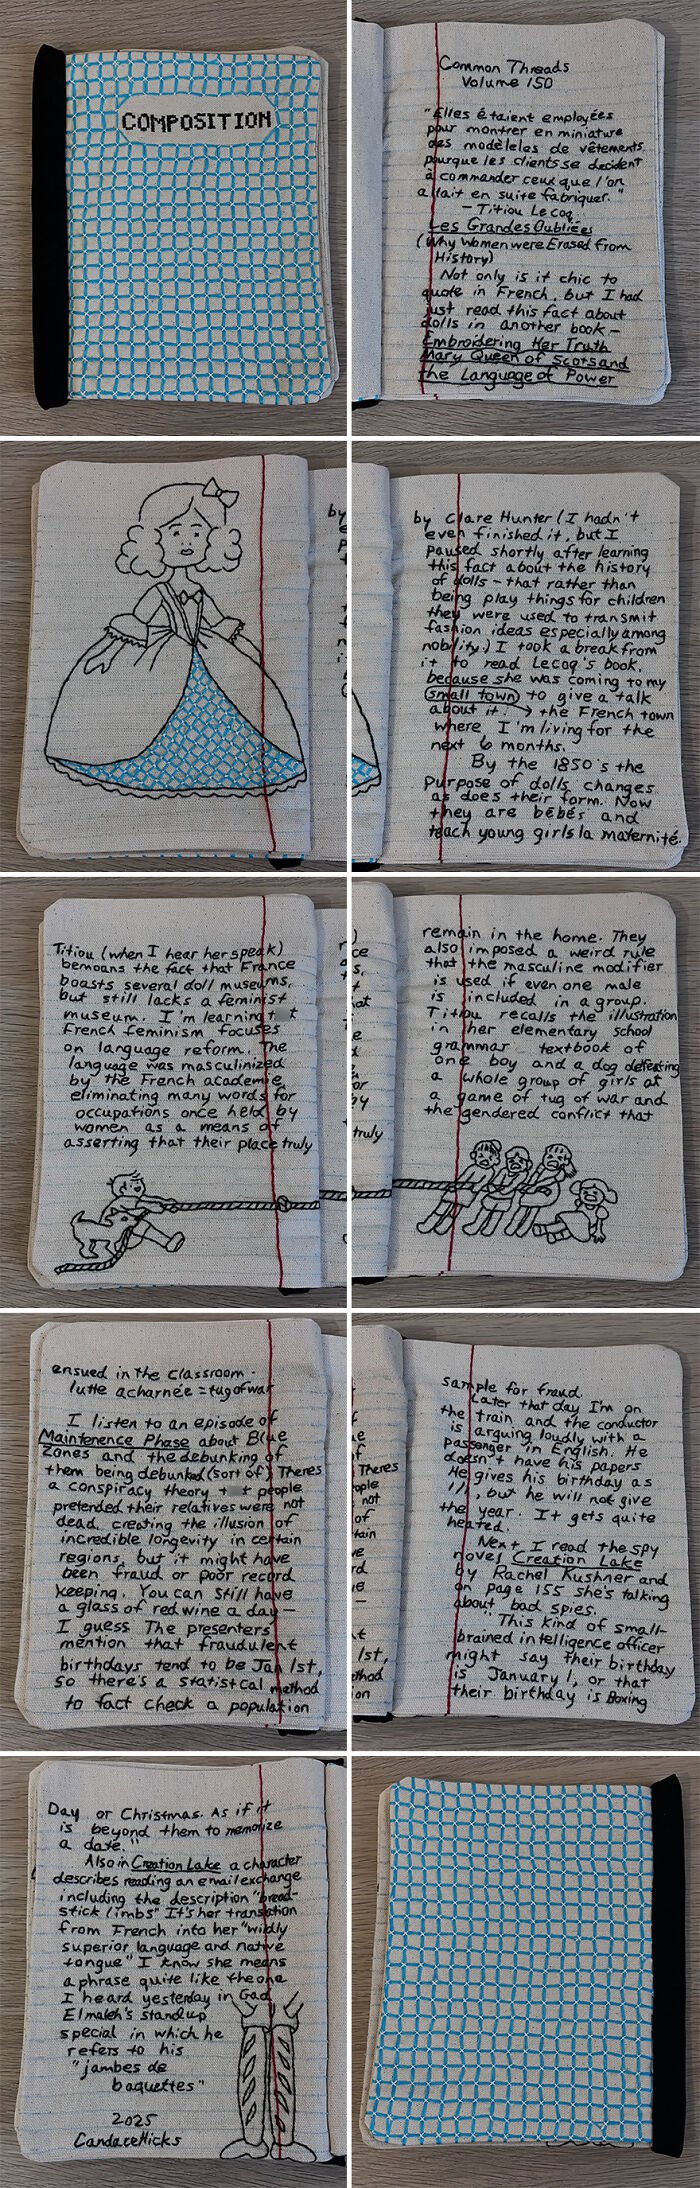 COMPOSITION
Common Threads
Volume 150
"Elles étaient employées
pour montrer en miniature
des modèleles de vêtements
pourque les clients se decident
à commander ceux que l'on
allait en suite fabriquer."
- Titiou Lecoq
Les Grandes Oubliées
(Why Women were Erased from
History)
Not only is it chic to
quote in French, but I had
just read this fact about
dolls in another book -
Embroidering Her Truth
Mary Queen of Scots and
the Language of Power
by Clare Hunter (I hadn't
even finished it, but I
paused shortly after learning
this fact about the history
of dolls - that rather than
being play things for children
they were used to transmit
fashion ideas especially among
nobility.) I took a break from
it to read Lecoq's book,
because she was coming to my
small town to give a talk
about it → the French town
where I'm living for the
next 6 months.
By the 1850's the
purpose of dolls changes
as does their form. Now
they are bébés and
teach young girls la maternité.
Titiou (when I hear her speak)
bemoans the fact that France
boasts several doll museums,
but still lacks a feminist
museum. I'm learning t t
French feminism focuses
on language reform. The
language was masculinized
by the French academie,
eliminating many words for
occupations once held by
women as a means of
asserting that their place truly
remain in the home. They
also imposed a weird rule
that the masculine modifier
is used if even one male
is included in a group.
Titiou recalls the illustration
in her elementary school
grammar textbook of
one boy and a dog defeating
a whole group of girls at
a game of tug of war and
the gendered conflict that
ensued in the classroom.
lutte acharnée = tug of war
I listen to an episode of
Maintenence Phase about Blue
Zones and the debunking of
them being debunked (sort of) Theres
a conspiracy theory t t people
pretended their relatives were not
dead, creating the illusion of
incredible longevity in certain
regions, but it might have
been fraud or poor record
keeping. You can still have
a glass of red wine a day -
I guess The presenters
mention that fraudulent
birthdays tend to be Jan 1st,
so there's a statistical method
to fact check a population
sample for fraud.
Later that day I'm on
the train and the conductor
is arguing loudly with a
passenger in English. He
doesn't have his papers
He gives his birthday as
1/1, but he will not give
the year. It gets quite
heated.
Next I read the spy
novel Creation Lake
by Rachel Kushner and
on page 155 she's talking
about bad spies.
"This kind of small-
brained intelligence officer
might say their birthday
is January 1, or that
their birthday is Boxing
Day or Christmas. As if it
is beyond them to memorize
a date."
Also in Creation Lake a character
describes reading an email exchange
including the description "bread-
stick limbs" It's her translation
from French into her "wildly
superior language and native
tongue" I know she means
a phrase quite like the one
I heard yesterday in Gad
Elmaleh's standup
special in which he
refers to his
"jambes de
baguettes"
2025
Candace Hicks